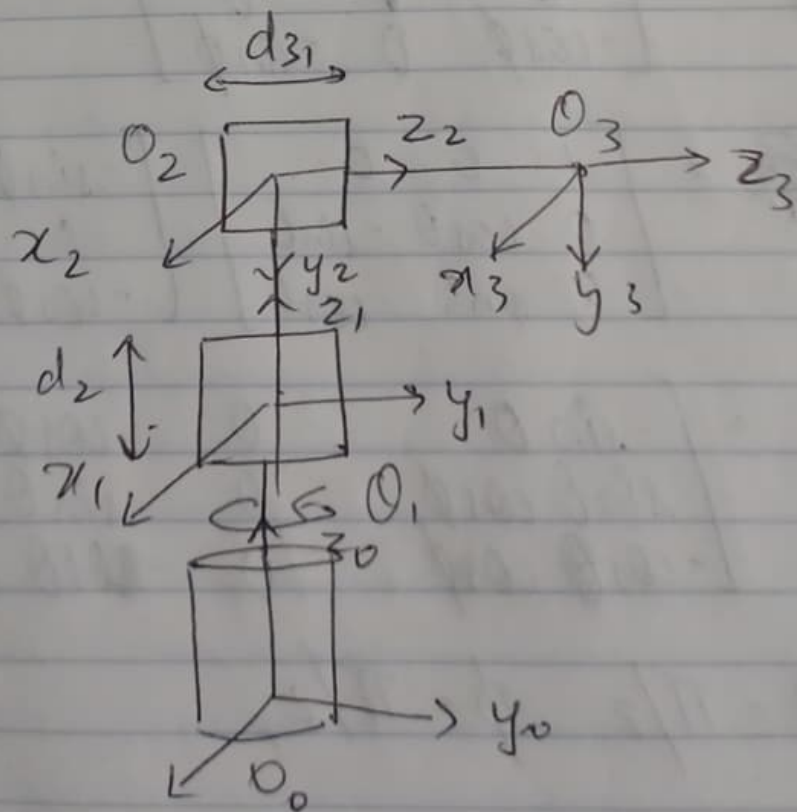 d₃₁
O₂ z₂ O₃
z₃
x₂ y₂ x₃ y₃
z₁
d₂ y₁
x₁ θ₁
z₀
y₀
O₀